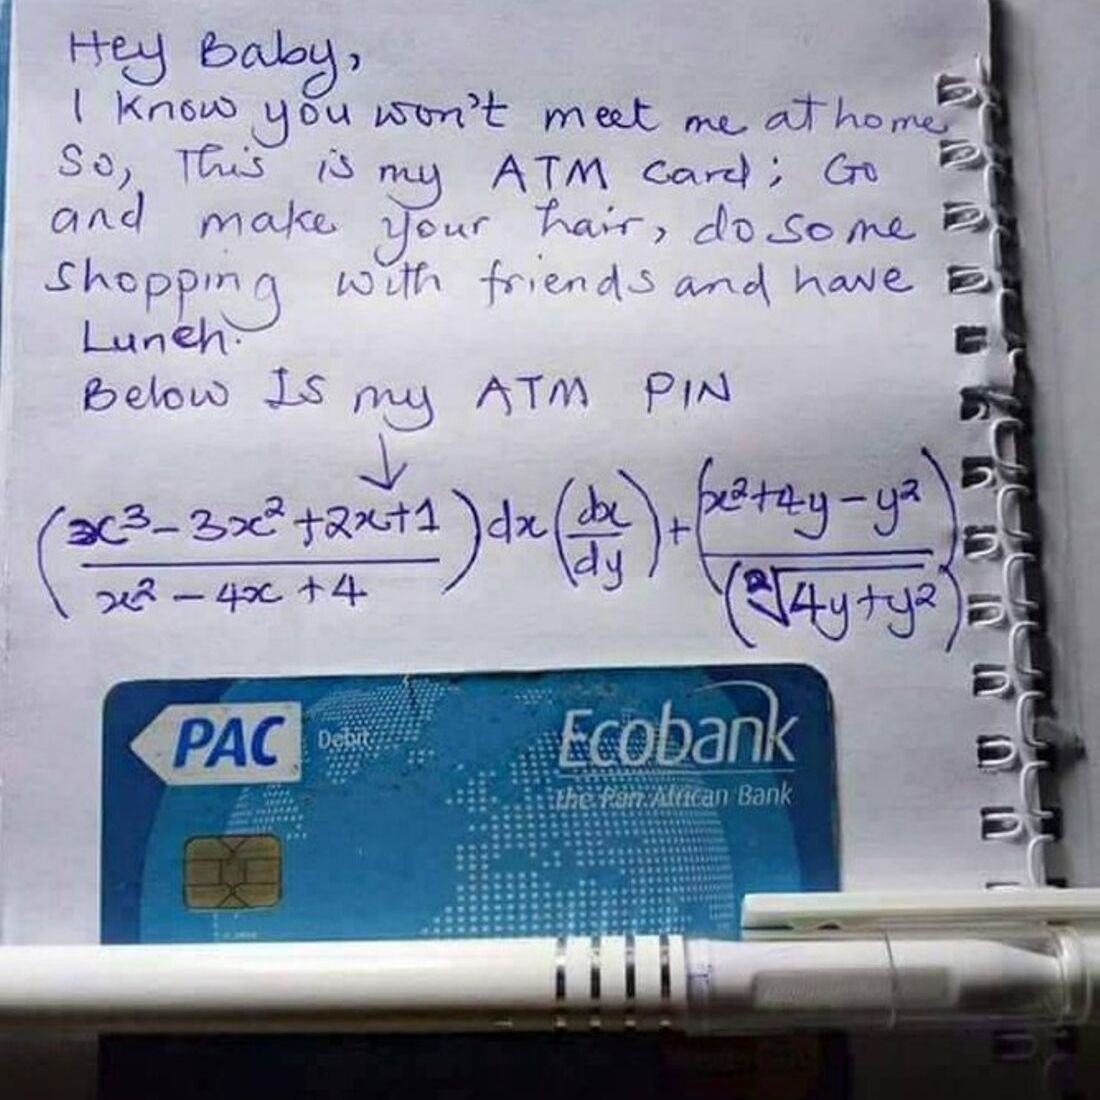 Hey Baby,
I know you won't meet me at home
So, This is my ATM card; Go
and make your hair, do some
shopping with friends and have
Lunch.
Below Is my ATM PIN
↓
(x³ - 3x² + 2x + 1 / x² - 4x + 4) dx (dx / dy) + (x² + 4y - y² / (²√4y + y²))
PAC Debit Ecobank
the Pan African Bank